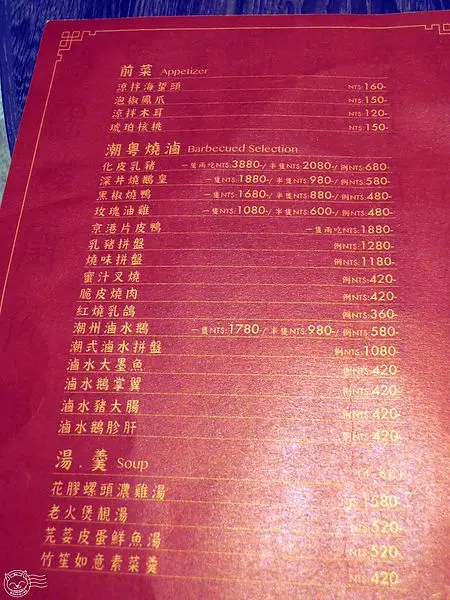 前菜 Appetizer
涼拌海蜇頭 NT$:160-
泡椒鳳爪 NT$:150-
涼拌木耳 NT$:120-
琥珀核桃 NT$:150-
潮粵燒滷 Barbecued Selection
化皮乳豬 一隻兩吃NT$:3880-/半隻NT$:2080-/例NT$:680-
深井燒鵝皇 一隻NT$:1880-/半隻NT$:980-/例NT$:580-
黑椒燒鴨 一隻NT$:1680-/半隻NT$:880-/例NT$:480-
玫瑰油雞 一隻NT$:1080-/半隻NT$:600-/例NT$:480-
京港片皮鴨 一隻兩吃NT$:1880-
乳豬拼盤 例NT$:1280-
燒味拼盤 例NT$:1180-
蜜汁叉燒 例NT$:420-
脆皮燒肉 例NT$:420-
紅燒乳鴿 例NT$:360-
潮州滷水鵝 一隻NT$:1780-/半隻NT$:980-/例NT$:580-
潮式滷水拼盤 例NT$:1080-
滷水大墨魚 例NT$:420-
滷水鵝掌翼 例NT$:420-
滷水豬大腸 例NT$:420-
滷水鵝胗肝 例NT$:420-
湯．羹 Soup
花膠螺頭濃雞湯 1580-
老火煲靚湯 520-
芫荽皮蛋鮮魚湯 520-
竹笙如意素菜羹 NT$:420-